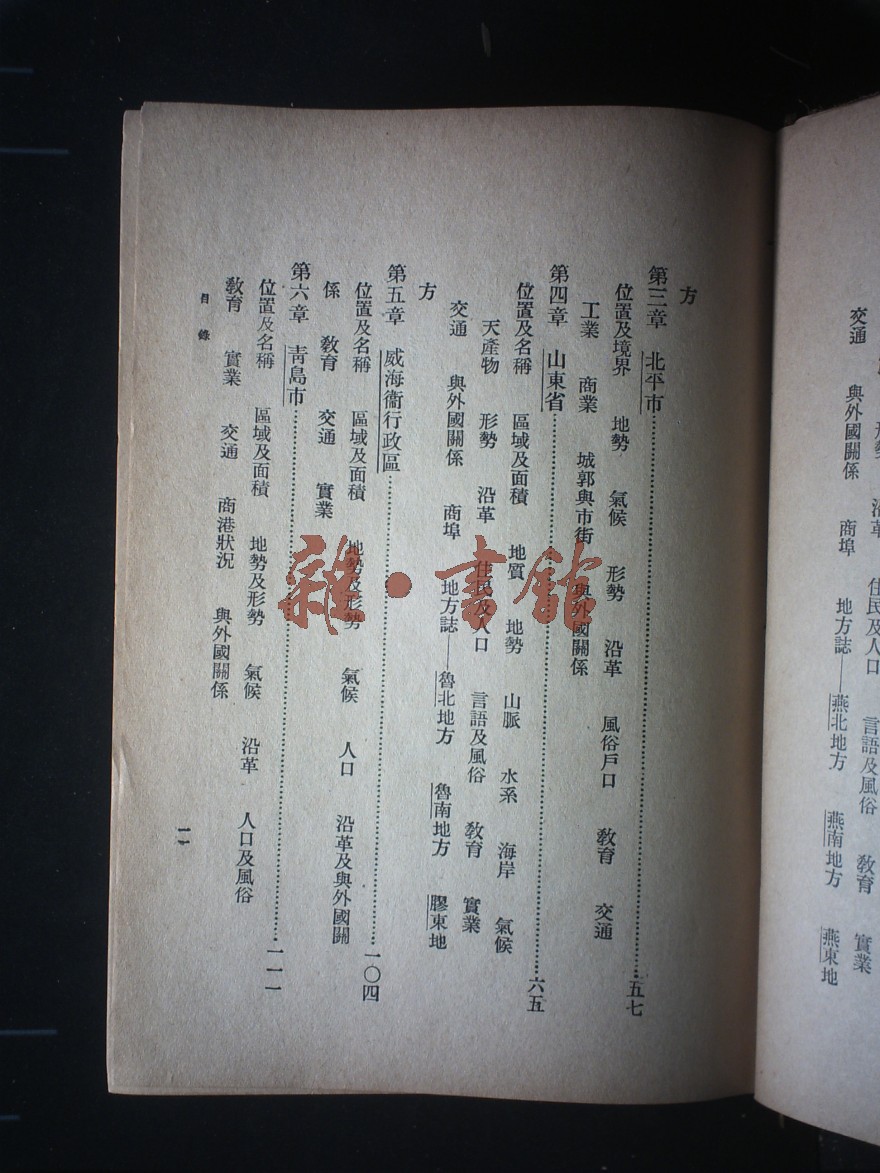 形勢 沿革 住民及人口 言語及風俗 敎育 實業
交通 與外國關係 商埠 地方誌——燕北地方 燕南地方 燕東地
方
第三章 北平市……五七
位置及境界 地勢 氣候 形勢 沿革 風俗戶口 敎育 交通
工業 商業 城郭與市街 與外國關係
第四章 山東省……六五
位置及名稱 區域及面積 地質 地勢 山脈 水系 海岸 氣候
天產物 形勢 沿革 住民及人口 言語及風俗 敎育 實業
交通 與外國關係 商埠 地方誌——魯北地方 魯南地方 膠東地
方
第五章 威海衞行政區……一〇四
位置及名稱 區域及面積 地勢及形勢 氣候 人口 沿革及與外國關
係 敎育 交通 實業
第六章 靑島市……一一一
位置及名稱 區域及面積 地勢及形勢 氣候 沿革 人口及風俗
敎育 實業 交通 商港狀況 與外國關係
目錄
雜·書館